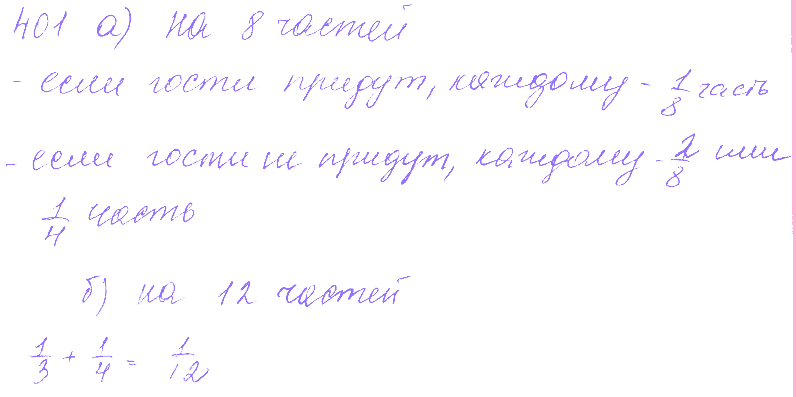 401 а) на 8 частей
- если гости придут, каждому - 1/8 часть
- если гости не придут, каждому - 2/8 или
1/4 часть
б) на 12 частей
1/3 + 1/4 = 1/12